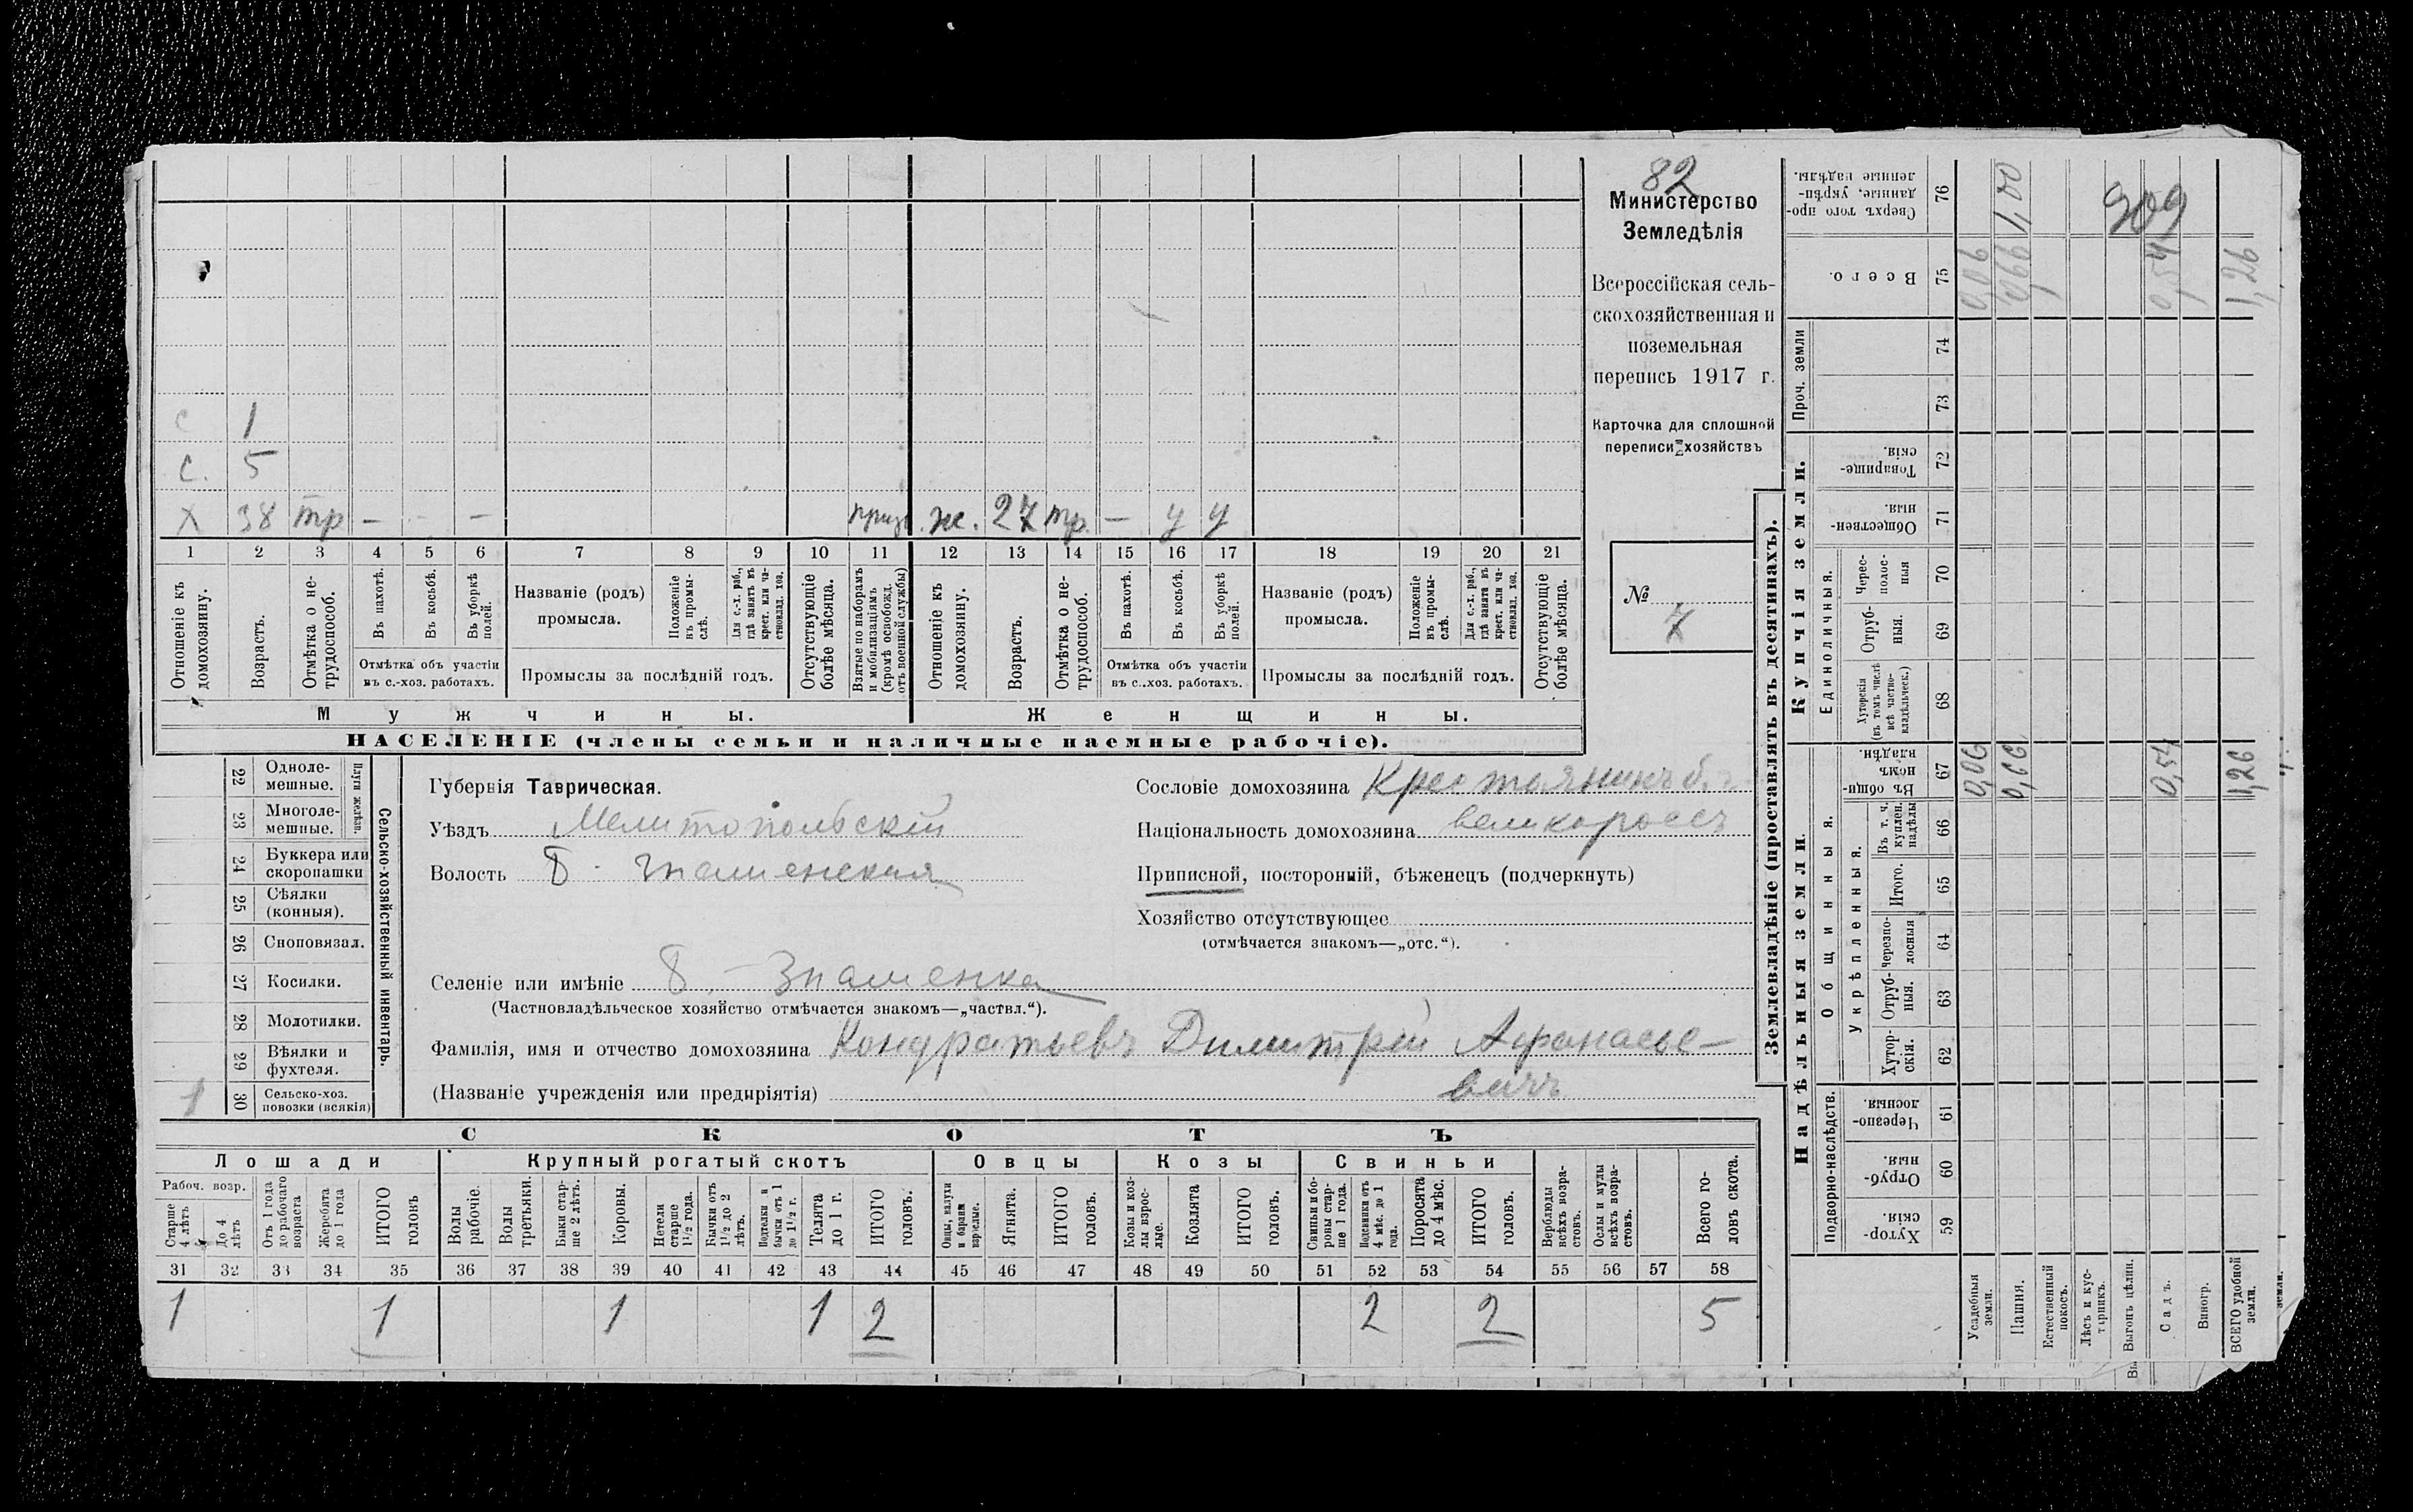 82
Министерство
Земледѣлія
Всероссійская сель-
скохозяйственная и
поземельная
перепись 1917 г.
Карточка для сплошной
переписи хозяйствъ
№
7
с 1
с. 5
х 38 тр - - - приз. ж. 27 тр. - у у
1 2 3 4 5 6 7 8 9 10 11 12 13 14 15 16 17 18 19 20 21
Отношеніе къ домохозяину.
Возрастъ.
Отмѣтка о не-трудоспособ.
Въ пахотѣ.
Въ косьбѣ.
Въ уборкѣ полей.
Отмѣтка объ участіи
въ с.-хоз. работахъ.
Названіе (родъ)
промысла.
Положеніе въ промы-слѣ.
Для с.-х. раб., гдѣ занятъ въ крест. или ча-стновлад. хоз.
Промыслы за послѣдній годъ.
Отсутствующіе болѣе мѣсяца.
Взятые по наборамъ и мобилизаціямъ (кромѣ освобожд. отъ военной службы)
Отношеніе къ домохозяину.
Возрастъ.
Отмѣтка о не-трудоспособ.
Въ пахотѣ.
Въ косьбѣ.
Въ уборкѣ полей.
Отмѣтка объ участіи
въ с.-хоз. работахъ.
Названіе (родъ)
промысла.
Положеніе въ промы-слѣ.
Для с.-х. раб., гдѣ занята въ крест. или ча-стновлад. хоз.
Промыслы за послѣдній годъ.
Отсутствующіе болѣе мѣсяца.
Мужчины. Женщины.
НАСЕЛЕНІЕ (члены семьи и наличные наемные рабочіе).
Сельско-хозяйственный инвентарь.
Плуги желѣзн.
22 Одноле-мешные.
23 Многоле-мешные.
24 Буккера или скоропашки
25 Сѣялки (конныя).
26 Сноповязал.
27 Косилки.
28 Молотилки.
29 Вѣялки и фухтеля.
1 30 Сельско-хоз. повозки (всякія)
Губернія Таврическая.
Уѣздъ Мелитопольскій
Волость Б. Знаменская
Сословіе домохозяина Крестьянинъ
Національность домохозяина великороссъ
Приписной, посторонній, бѣженецъ (подчеркнуть)
Хозяйство отсутствующее
(отмѣчается знакомъ—„отс.“).
Селеніе или имѣніе Б. - Знаменка
(Частновладѣльческое хозяйство отмѣчается знакомъ—„частвл.“).
Фамилія, имя и отчество домохозяина Кондратьевъ Димитрій Афанасье-
(Названіе учрежденія или предпріятія) вичъ
СКОТЪ
Лошади Крупный рогатый скотъ Овцы Козы Свиньи
Рабоч. возр.
Старше 4 лѣтъ
До 4 лѣтъ
Отъ 1 года до рабочаго возраста
Жеребята до 1 года
ИТОГО головъ
Волы рабочіе.
Волы третьяки.
Быки стар-ше 2 лѣтъ.
Коровы.
Нетели старше 1½ года.
Бычки отъ 1½ до 2 лѣтъ.
Подтелки и бычки отъ 1 до 1½ г.
Телята до 1 г.
ИТОГО головъ.
Овцы, валухи и бараны взрослые.
Ягнята.
ИТОГО головъ.
Козы и коз-лы взрос-лые.
Козлята
ИТОГО головъ.
Свиньи и бо-ровы стар-ше 1 года.
Подсвинки отъ 4 мѣс. до 1 года.
Поросята до 4 мѣс.
ИТОГО головъ.
Верблюды всѣхъ возра-стовъ.
Ослы и мулы всѣхъ возра-стовъ.
Всего го-ловъ скота.
31 32 33 34 35 36 37 38 39 40 41 42 43 44 45 46 47 48 49 50 51 52 53 54 55 56 57 58
1 1 1 1 2 2 2 5
Землевладѣніе (проставлять въ десятинахъ).
Купчія земли.
Надѣльныя земли.
Сверхъ того про-данные, укрѣп-ленные надѣлы. 76
Всего. 75
Проч. земли 74 73
Товарище-скія. 72
Обществен-ныя. 71
Единоличныя.
Черес-полос-ныя 70
Отруб-ныя. 69
Хуторскія (въ томъ числѣ всѣ частно-владѣльческ.) 68
Общинныя.
Въ общи-номъ владѣн. 67
Укрѣпленныя.
Въ т. ч. куплен. надѣлы 66
Итого. 65
Черезпо-лосныя 64
Отруб-ныя. 63
Хутор-скія. 62
Подворно-наслѣдств.
Черезпо-лосныя. 61
Отруб-ныя. 60
Хутор-скія. 59
1,00
909
0,06 0,66 0,54 1,26
0,06 0,66 0,54 1,26
Усадебныя земли.
Пашня.
Естественный покосъ.
Лѣсъ и кус-тарникъ.
Выгонъ цѣлин.
Садъ.
Виногр.
ВСЕГО удобной земли.
земли.